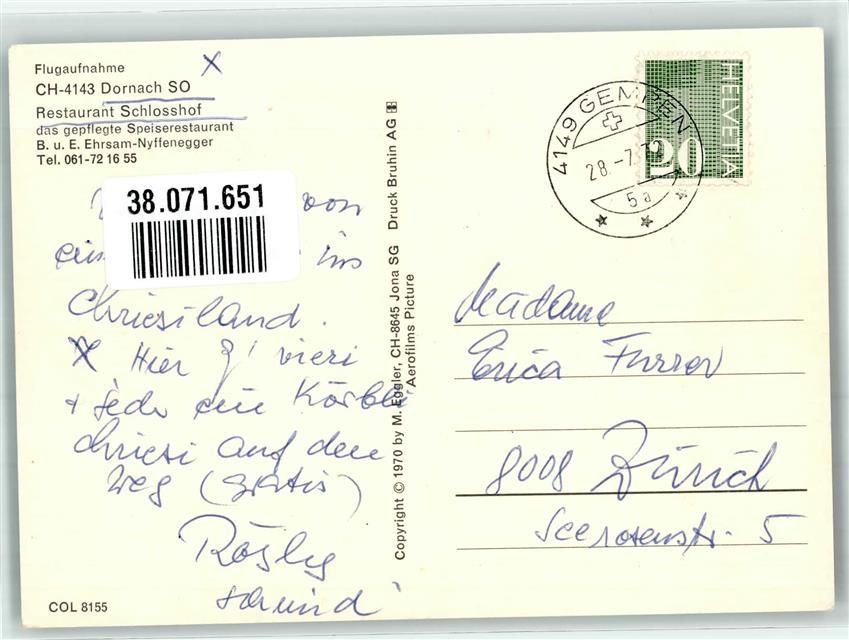 Flugaufnahme X
CH-4143 Dornach SO
Restaurant Schlosshof
das gepflegte Speiserestaurant
B. u. E. Ehrsam-Nyffenegger
Tel. 061-72 16 55
38.071.651
von
ins
Chriesiland.
X Hier z' vieri
+ jede ein Körbli
Chriesi auf den
Weg (gratis)
Rösly
COL 8155
Copyright © 1970 by M. Eggler, CH-8645 Jona SG Druck Bruhin AG
Aerofilms Picture
4149 GEMPEN
28.-7.
5a
HELVETIA
20
Madame
Erica Furrer
8008 Zürich
Seerosenstr. 5